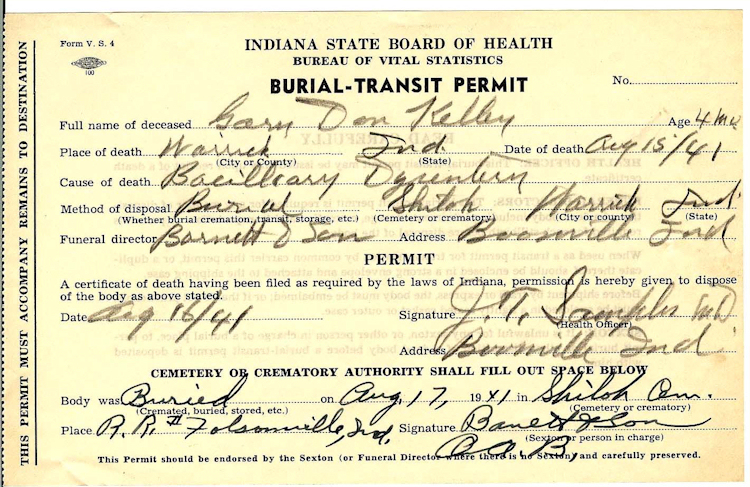 Form V. S. 4
100
INDIANA STATE BOARD OF HEALTH
BUREAU OF VITAL STATISTICS
BURIAL-TRANSIT PERMIT
No.
Full name of deceased Gary Don Kelley Age 4 mo
Place of death Warrick Ind. Date of death Aug 15/41
(City or County) (State)
Cause of death Bacilleary Dysentery
Method of disposal Burial Shiloh Warrick Ind.
(Whether burial cremation, transit, storage, etc.) (Cemetery or crematory) (City or county) (State)
Funeral director Barnett & Son Address Boonville Ind
PERMIT
A certificate of death having been filed as required by the laws of Indiana, permission is hereby given to dispose
of the body as above stated.
Date Aug 16/41 Signature J. T. Samples MD
(Health Officer)
Address Boonville Ind
CEMETERY OR CREMATORY AUTHORITY SHALL FILL OUT SPACE BELOW
Body was Buried on Aug. 17, 1941 in Shiloh Cem.
(Cremated, buried, stored, etc.) (Cemetery or crematory)
Place R. R. # Folsomville, Ind. Signature & Son
(Sexton or person in charge)
This Permit should be endorsed by the Sexton (or Funeral Director where there is no Sexton) and carefully preserved.
THIS PERMIT MUST ACCOMPANY REMAINS TO DESTINATION